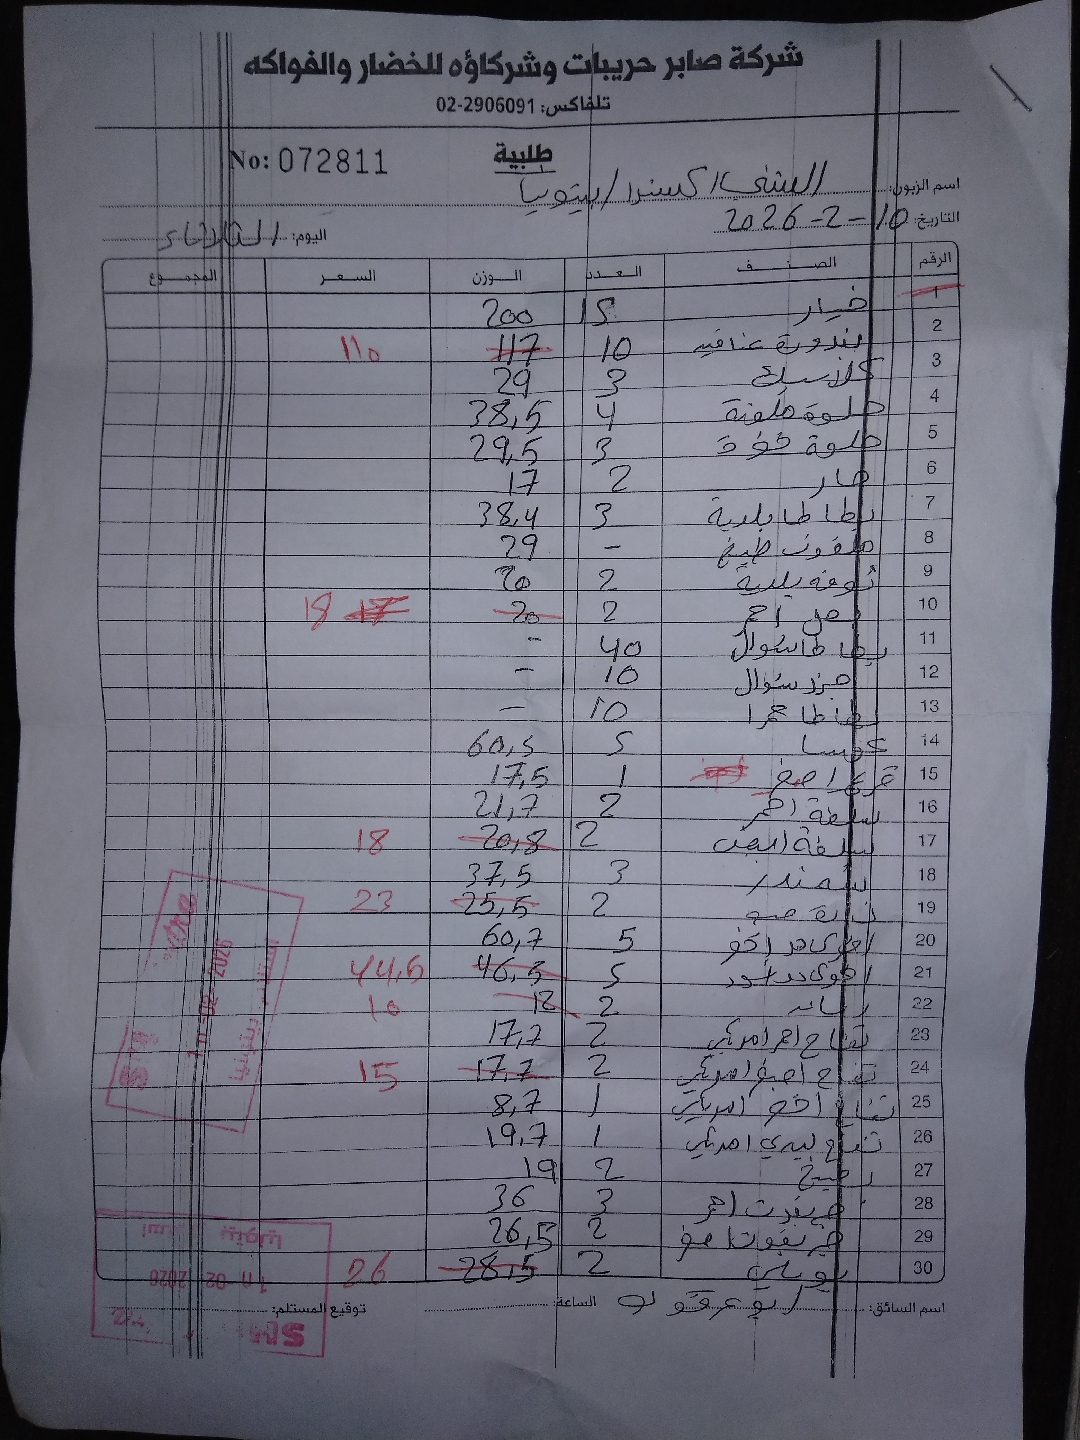 شركة صابر حريبات وشركاؤه للخضار والفواكه
تلفاكس: 02-2906091
طلبية
No: 072811
اسم الزبون: الشني اكسترا / بيتونيا
التاريخ: 10-2-2026
اليوم: الثلاثاء
الرقم الصنف العدد الوزن السعر المجموع
1 خيار 15 200
2 بندورة عناقيد 10 117 110
3 كلاسيك 3 29
4 حلوة ملونة 4 38,5
5 حلوة 3 29,5
6 حار 2 17
7 بطاطا بلدية 3 38,4
8 ملفوف طبيخ - 29
9 بلدية 2 20
10 بصل احمر 2 20 17 18
11 بطاطا شوال 40 -
12 جزر شوال 10 -
13 بطاطا حمرا 10 -
14 كوسا 5 60,5
15 قرع اصفر 1 17,5
16 احمر 2 21,7
17 2 20,8 18
18 شمندر 3 37,5
19 2 25,5 23
20 5 60,7
21 5 46,5 44,5
22 2 12 10
23 تفاح احمر امريكي 2 17,7
24 تفاح امريكي 2 17,7 15
25 تفاح اخضر امريكي 1 8,7
26 تفاح ليدي امريكي 1 19,7
27 2 19
28 جريفوت احمر 3 36
29 2 26,5
30 بوملي 2 28,5 26
اسم السائق: الساعة: توقيع المستلم: